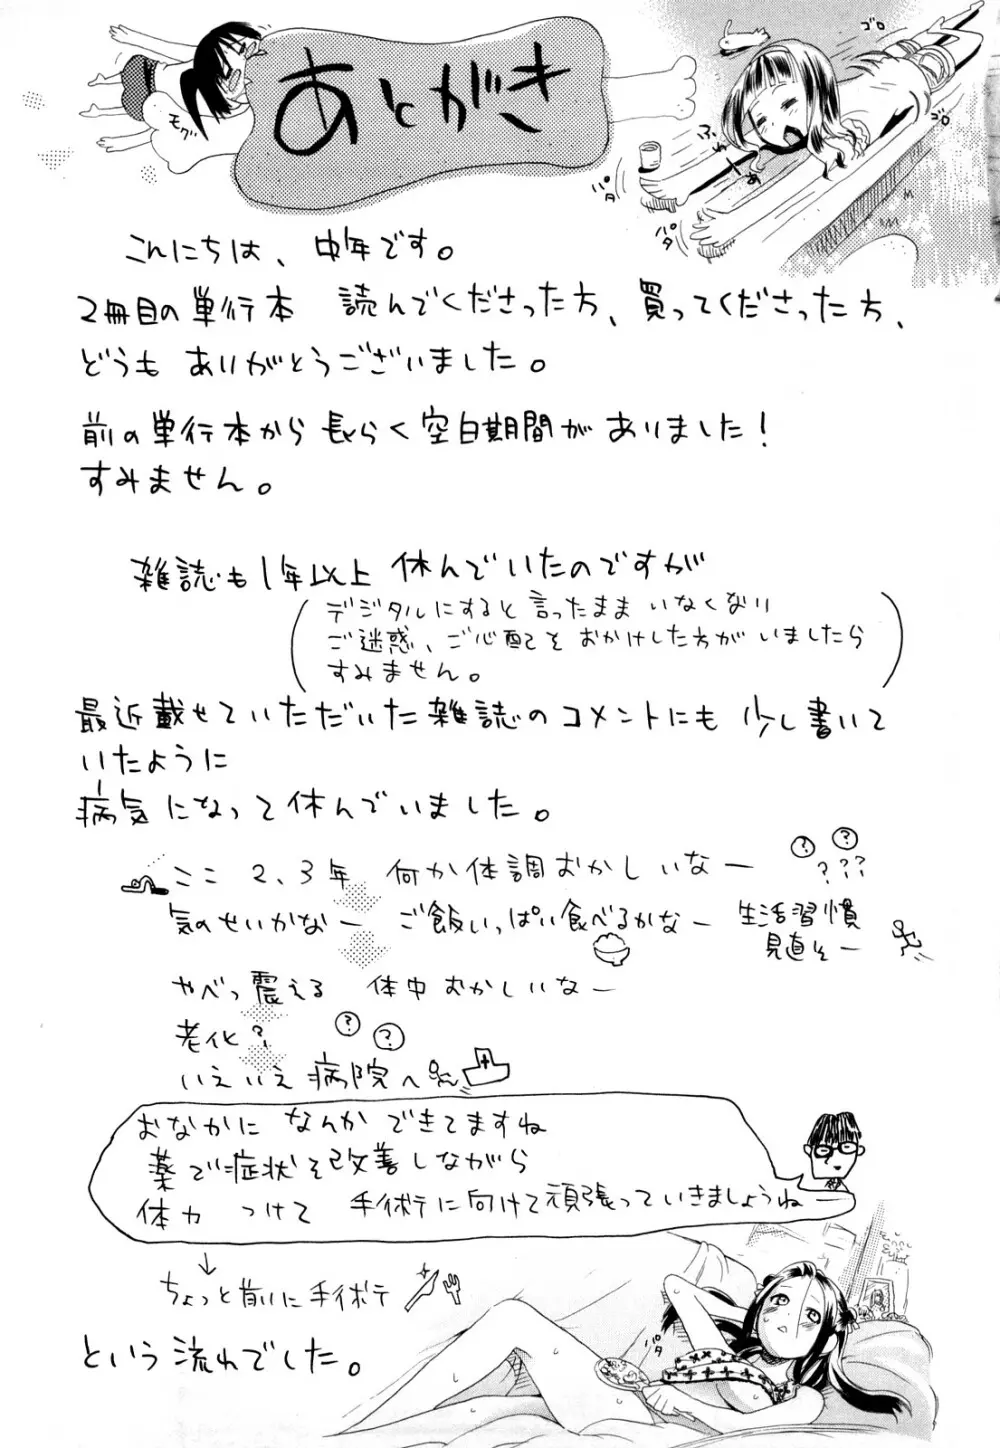 あとがき
モグ
ゴロ
ゴロ
ふわーぁ
パタ
パタ
こんにちは、中年です。
2冊目の単行本 読んでくださった方、買ってくださった方、
どうも ありがとうございました。
前の単行本から 長らく空白期間がありました!
すみません。
雑誌も1年以上 休んでいたのですが
(デジタルにすると言ったまま いなくなり
ご迷惑、ご心配を おかけした方が いましたら
すみません。)
最近載せていただいた雑誌のコメントにも 少し書いて
いたように
病気になって休んでいました。
ここ 2、3年 何か体調おかしいなー ? ? ???
気のせいかなー ご飯いっぱい食べるかなー 生活習慣
見直そー
やべっ震える 体中おかしいなー
老化? ? ?
いえいえ 病院へ
おなかに なんか できてますね
薬で症状を改善しながら
体力 つけて 手術テに向けて頑張っていきましょうね
↓
ちょっと前に手術テ
パタ
という流れでした。